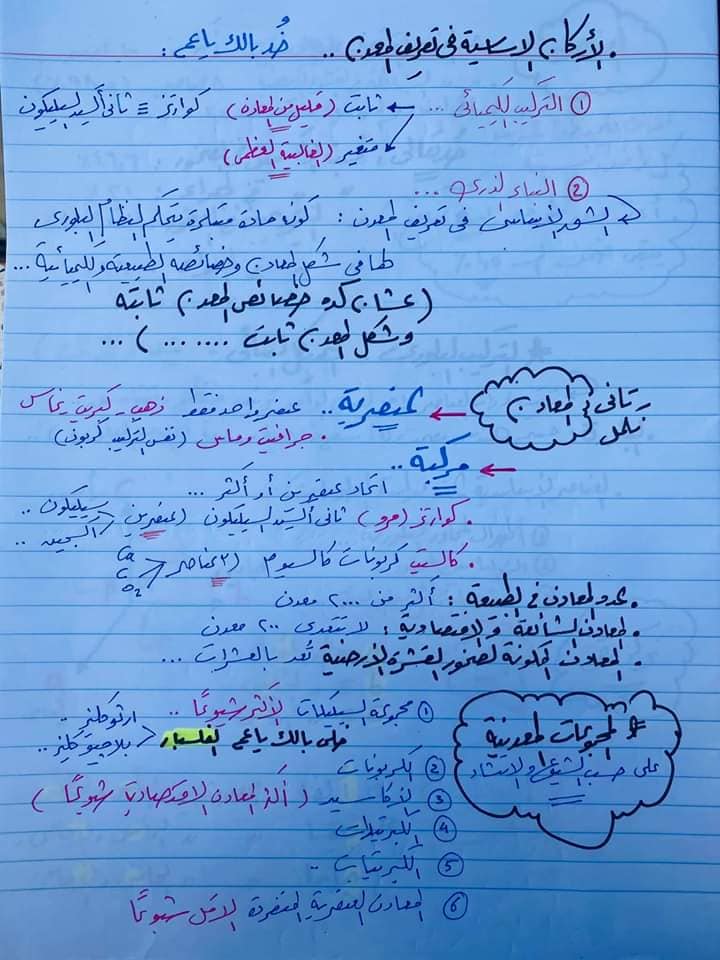 . الأركان الاساسية فى تعريف المعدن .. خُد بالك ياعم :
① التركيب الكيميائى ... ← ثابت (قليل من المعادن) كوارتز = ثانى أكسيد السيليكون
متغير (الغالبية العظمى)
② البناء الذرى ...
الشرط الأساسى فى تعريف المعدن : كونه مادة متبلرة يتحكم النظام البلورى
لها فى شكل المعادن وخصائصه الطبيعية والكيميائية ...
(عشان كده خصائص المعدن ثابتة
وشكل المعدن ثابت ..... ) ...
المعادن
عنصرية .. عنصر واحد فقط ذهب - كبريت - نحاس
. جرافيت وماس (نفس التركيب كربون)
مركبة ..
اتحاد عنصرين أو أكثر ...
. كوارتز (مرو) ثانى أكسيد السيليكون (عنصرين سيليكون ..
أكسجين ..
. كالسيت كربونات كالسيوم (٣ عناصر Ca
C
O2
. عدد المعادن فى الطبيعة : أكثر من ٢٠٠٠ معدن
. المعادن الشائعة والاقتصادية : لا تتعدى ٢٠٠ معدن
. المعادن المكونة لصخور القشرة الأرضية تُعد بالعشرات ...
* المجموعات المعدنية
على حسب الشيوع والانتشار
① مجموعة السيليكات الأكثر شيوعًا ..
خلى بالك ياعم الفلسبار < ارثوكليز ..
بلاجيوكليز ..
② الكربونات
③ الأكاسيد (أكثر المعادن الاقتصادية شيوعًا)
④ الكبريتيدات
⑤ الكبريتات ..
⑥ المعادن العنصرية المنفردة الاقل شيوعًا